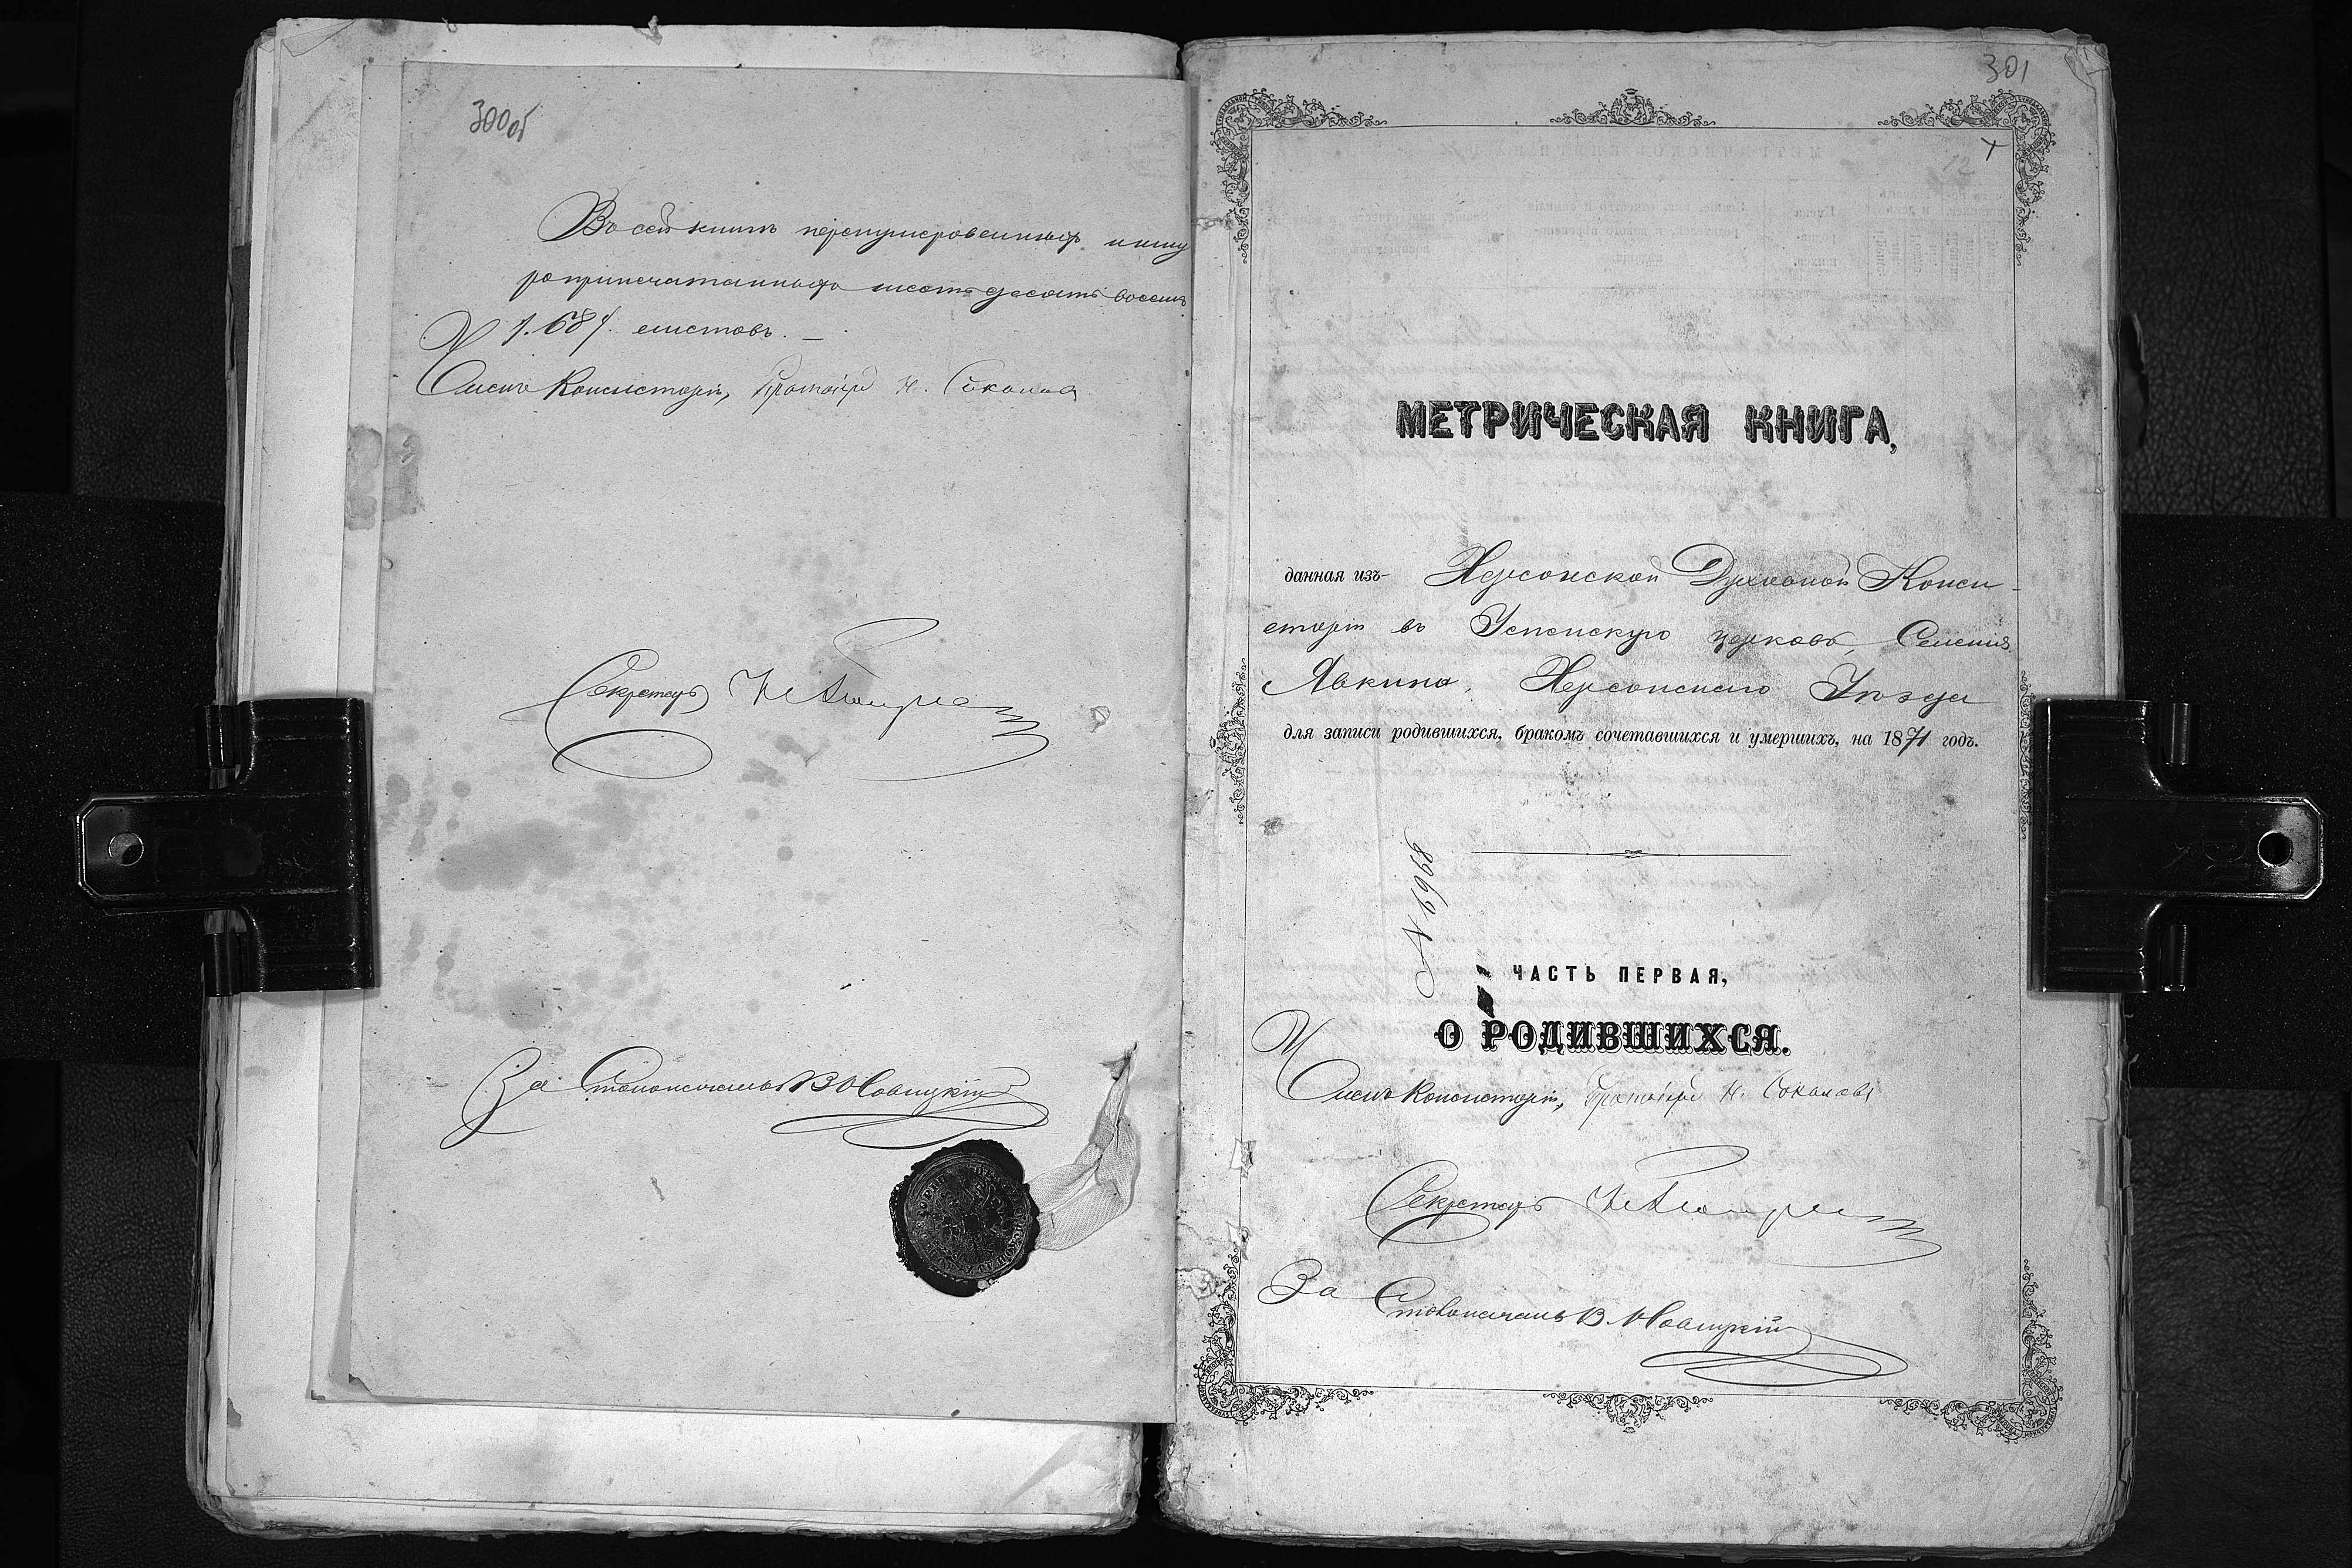 300об
Въ сей книгѣ перенумерованныхъ и шну
роприпечатанныхъ шестьдесятъ восемь
/:68/: листовъ. —
Членъ Консисторіи, Протоіерей Н. Соколовъ
Секретарь
За Столоначальника В Новицкій
301
12
МЕТРИЧЕСКАЯ КНИГА,
данная изъ Херсонской Духовной Конси-
сторіи въ Успенскую церковь, Селенія
Явкина, Херсонскаго Уѣзда
для записи родившихся, бракомъ сочетавшихся и умершихъ, на 1871 годъ.
N 6968
ЧАСТЬ ПЕРВАЯ,
О РОДИВШИХСЯ.
Членъ Консисторіи, Протоіерей Н. Соколовъ
Секретарь
За
Столоначальника В. Новицкій